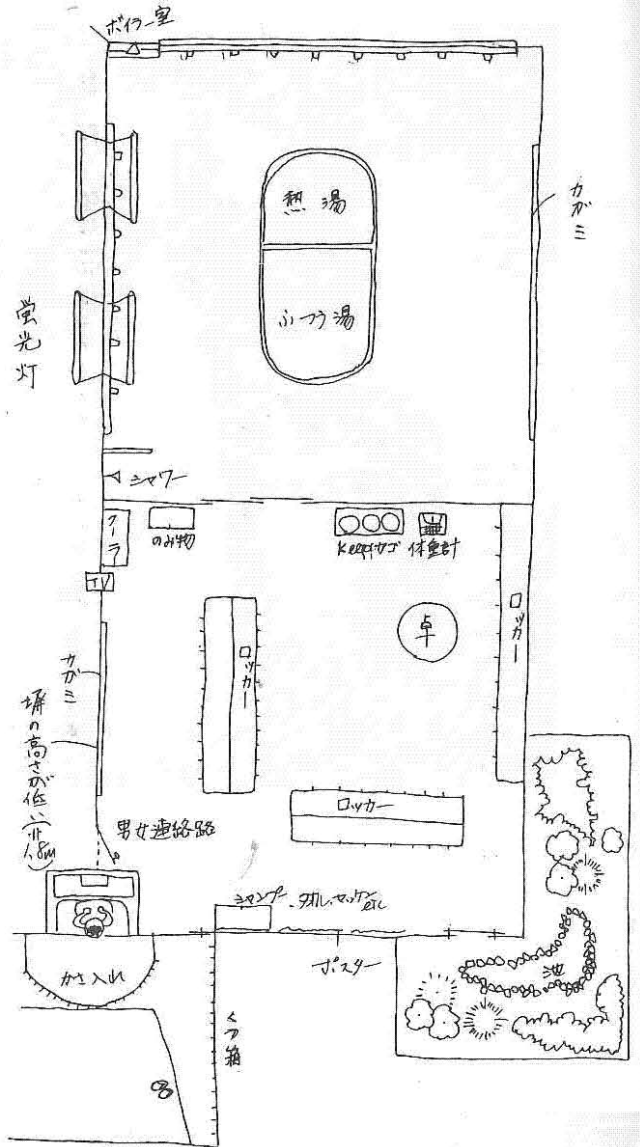 ボイラー室
熱湯
ふつう湯
カガミ
蛍光灯
シャワー
クーラー
のみ物
Keepカゴ
体重計
TV
ロッカー
卓
ロッカー
カガミ
塀の高さが低い(1.8m)
ロッカー
男女連絡路
シャンプー、タオル、セッケンetc
ポスター
かさ入れ
くつ箱
池